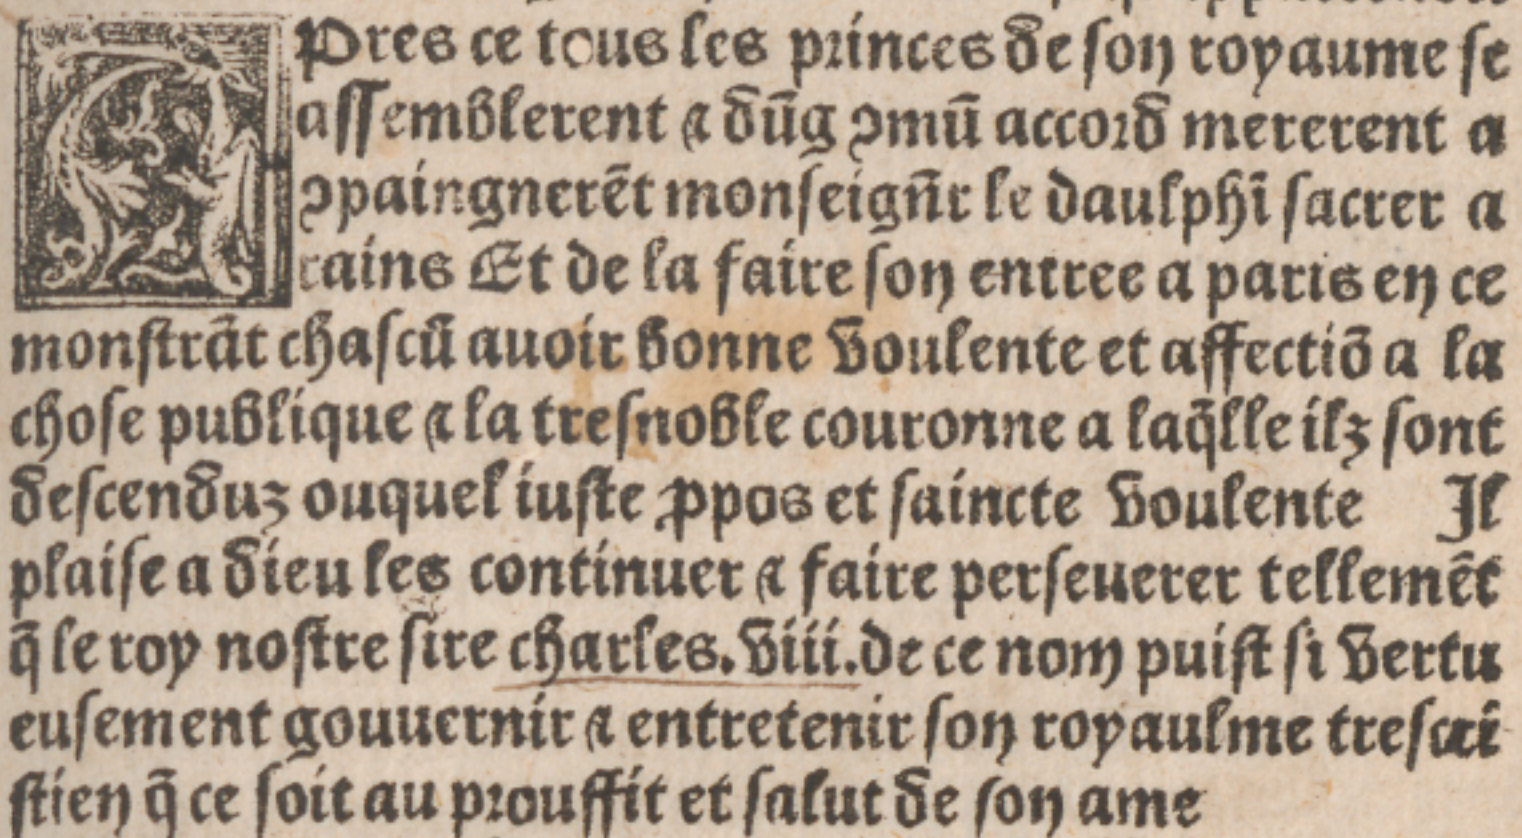 APres ce tous les princes de son royaume se
assemblerent ⁊ dūg ꝯmū accord mererent a
ꝯpaingnerēt monseign̄r le daulphī sacrer a
rains Et de la faire son entree a paris en ce
monstrāt chascū auoir bonne voulente et affectiō a la
chose publique ⁊ la tresnoble couronne a laq̄lle ilz sont
descenduz ouquel iuste ꝓpos et saincte voulente Il
plaise a dieu les continuer ⁊ faire perseuerer tellemēt
q̄ le roy nostre sire charles.viii.de ce nom puist si vertu
eusement gouuernir ⁊ entretenir son royaulme trescri
stien q̄ ce soit au prouffit et salut de son ame